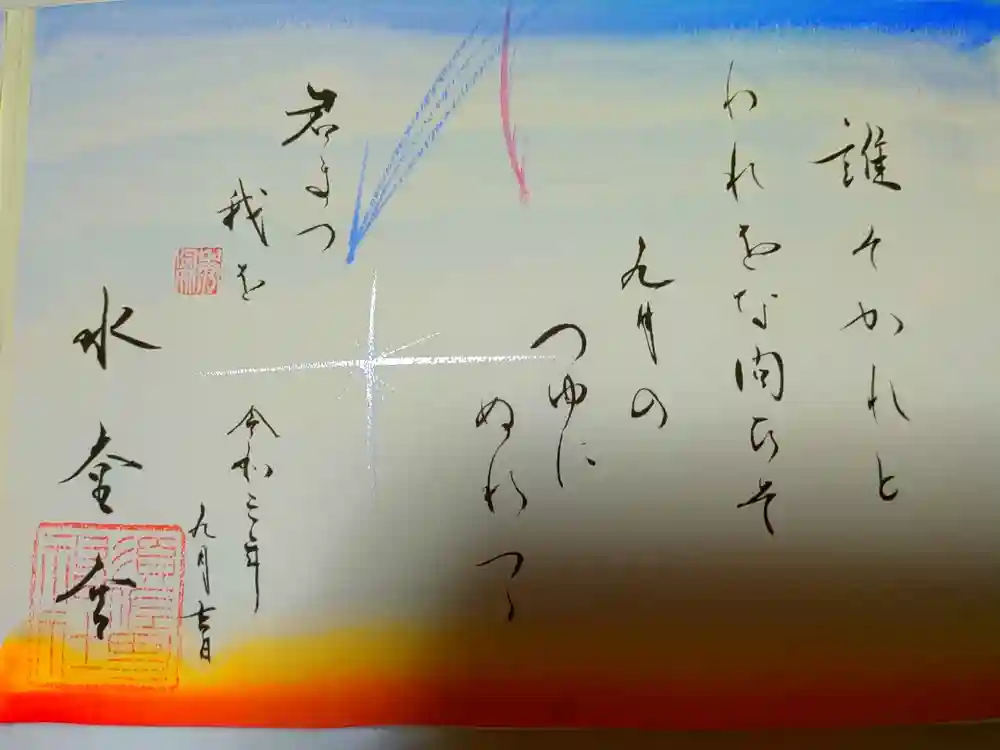 誰そかれと
われをな問ひそ
九月の
つゆに
ぬれつつ
君まつ
我を
令和三年
九月吉日
水金